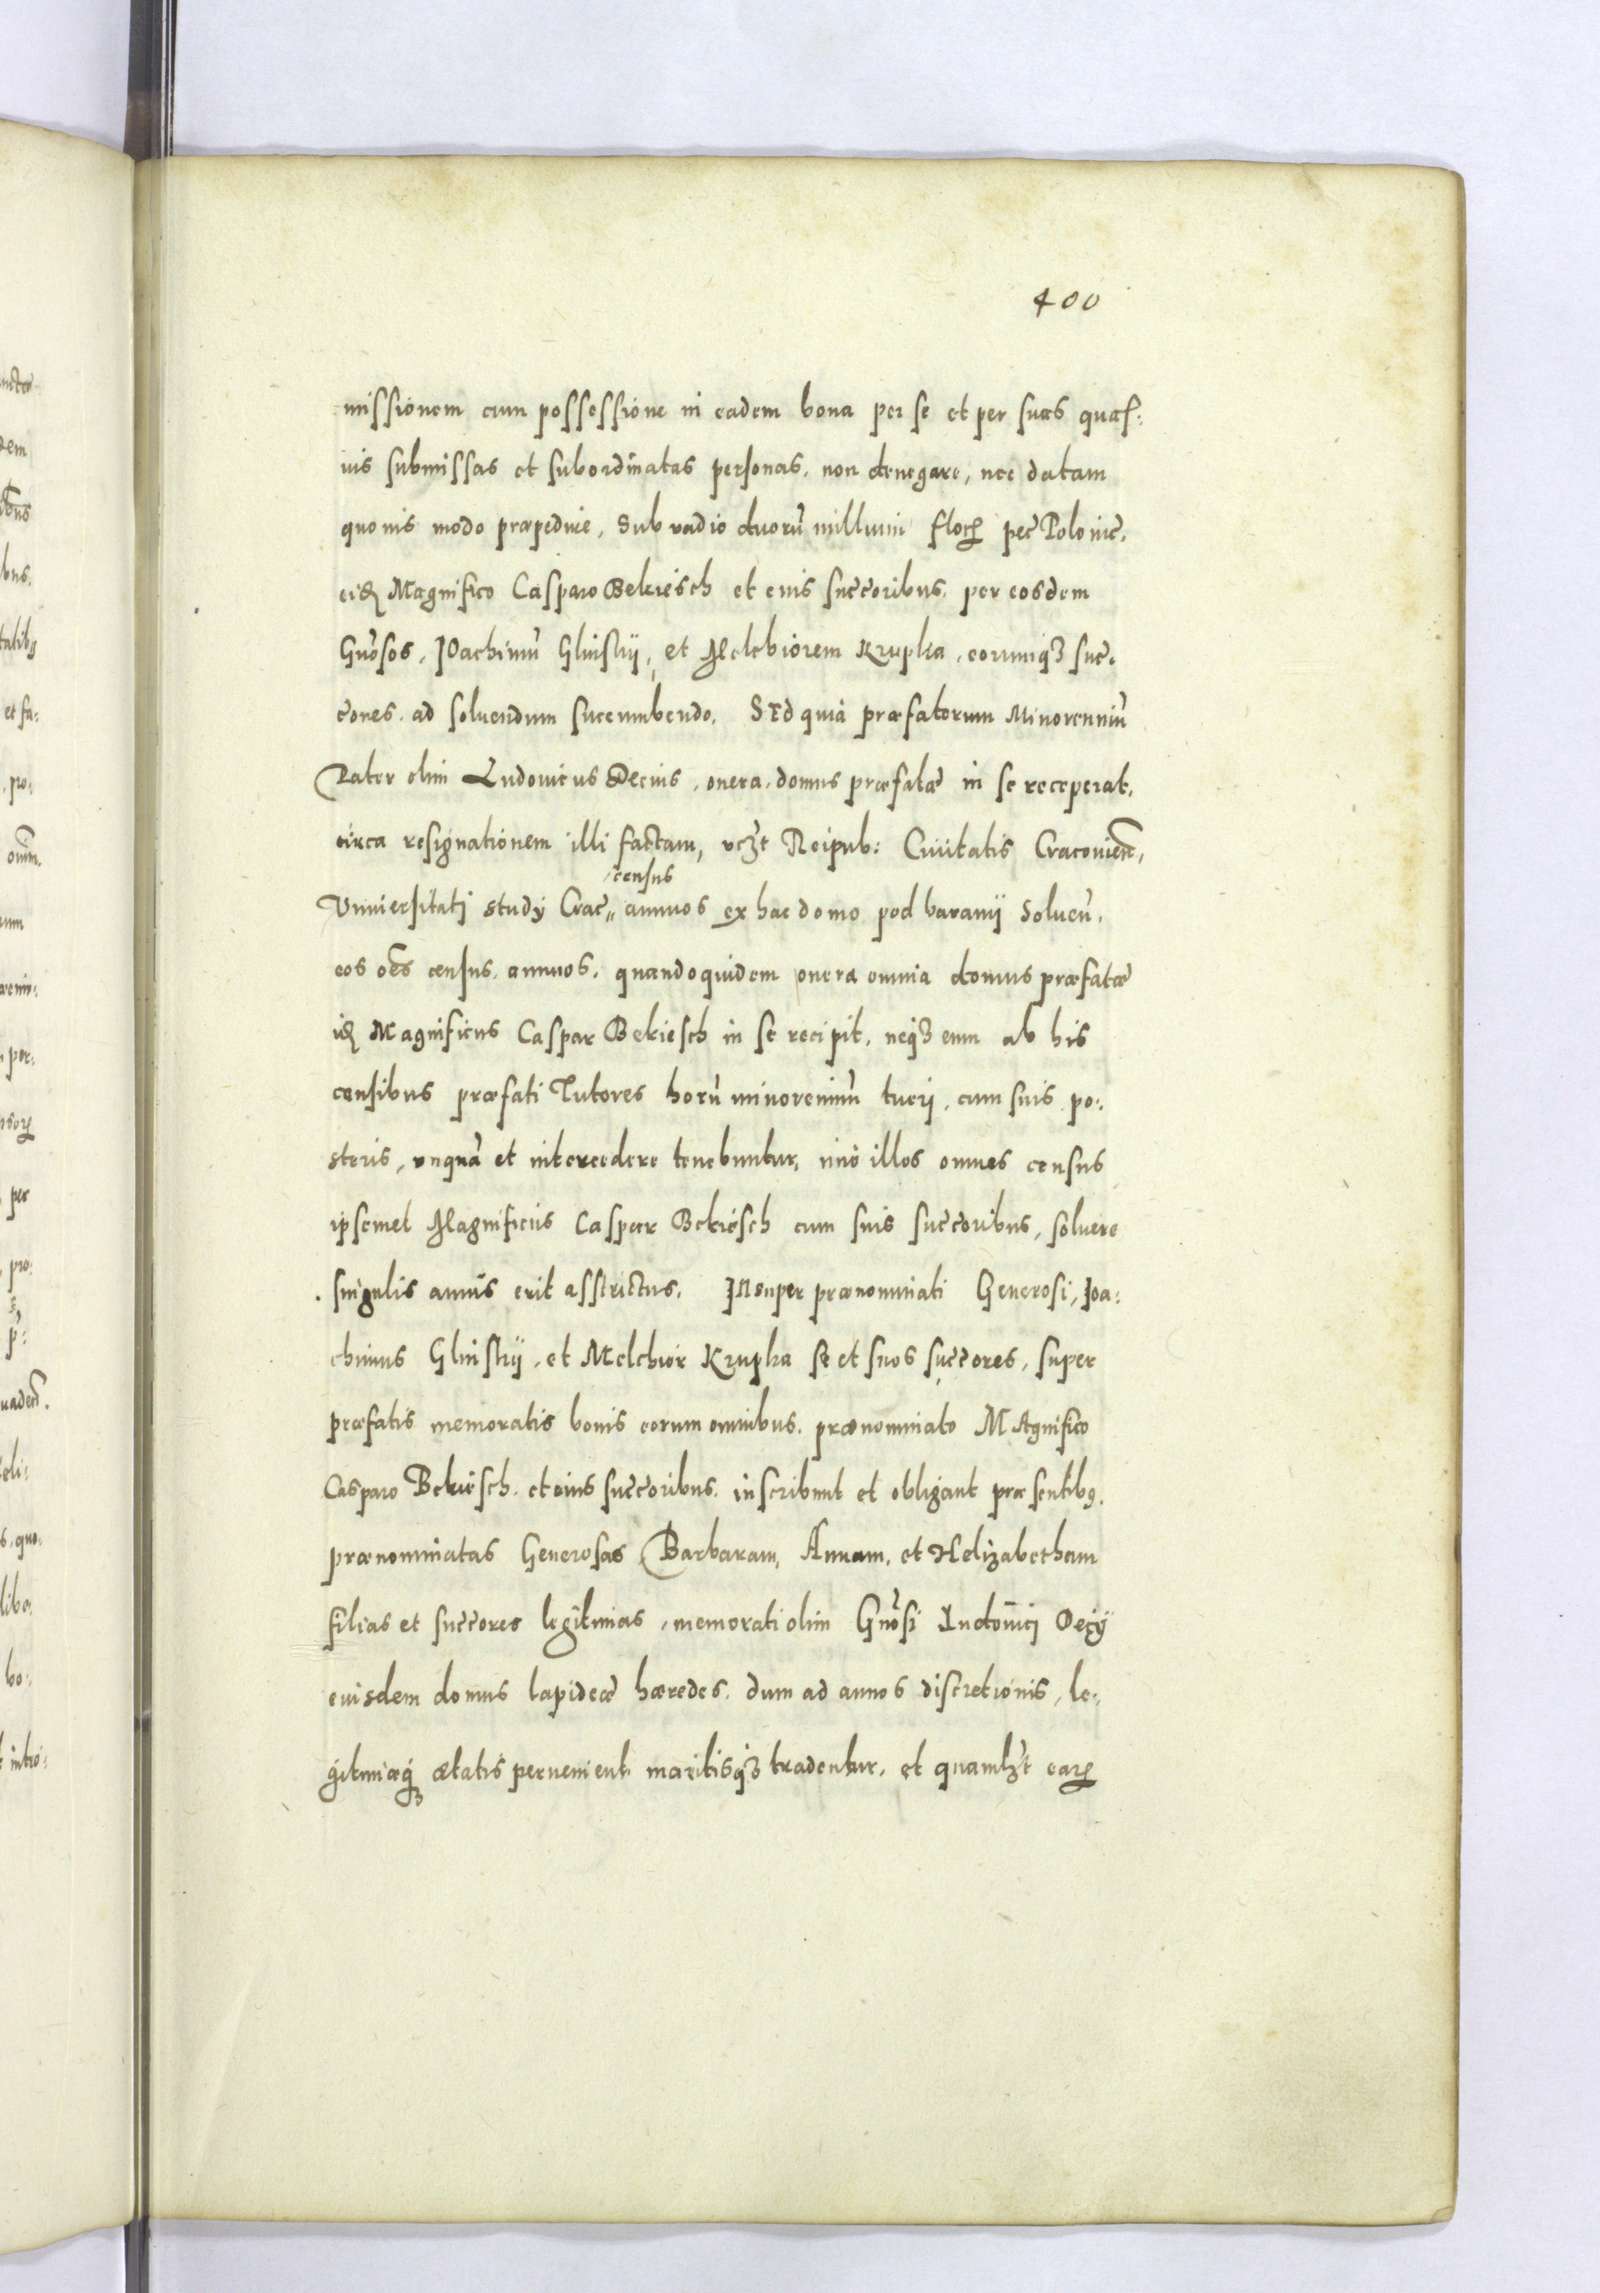 400
missionem cum possessione in eadem bona per se et per suas quas:
uis submissas et subordinatas personas, non denegare, nec datam
quouis modo præpedire, Sub vadio duorū millium floꝝ pec̄ Polonic̄,
eidē Magnifico Casparo Bekiesch et eius succ̄oribus, per eosdem
Gn̄osos, Ioachimū Glinskij, et Melchiorem Krupka, eorumqꝫ suc̄,
c̄ores, ad soluendum succumbendo. Sed quia præfatorum Minorenniū
Pater olim Ludouicus Decius, onera domus præfatæ in se receperat,
circa resignationem illi factam, vcꝫt Reipub: Ciuitatis Cracouien̄,
census
Vniuersitati study Crac̄,, annuos ex hac domo pod barany Soluen̄,
eos oēs census annuos, quandoquidem onera omnia domus præfatæ
idē Magnificus Caspar Bekiesch in se recipit, neqꝫ eum ab his
censibus præfati Tutores horū minorenniū tueri, cum suis po:
steris, vnquā et intercedere tenebuntur, imò illos omnes census
ipsemet Magnificus Caspar Bekiesch cum suis succ̄oribus, soluere
singulis annis erit asstrictus. Insuper prænominati Generosi, Ioa:
chimus Glinskij, et Melchior Krupka se et suos succ̄ores, super
præfatis memoratis bonis eorum omnibus, prænominato Magnifico
Casparo Bekiesch, et eius succ̄oribus, inscribunt et obligant præsentibꝰ,
prænominatas Generosas Barbaram, Annam, et Helizabetham
filias et succ̄ores legitimas, memorati olim Gn̄osi Ludouici Decij
euisdem domus lapideæ hæredes, dum ad annos discretionis, le:
gitimæqꝫ ætatis peruenient maritisqꝫ tradentur, et quamlꝫt earꝝ